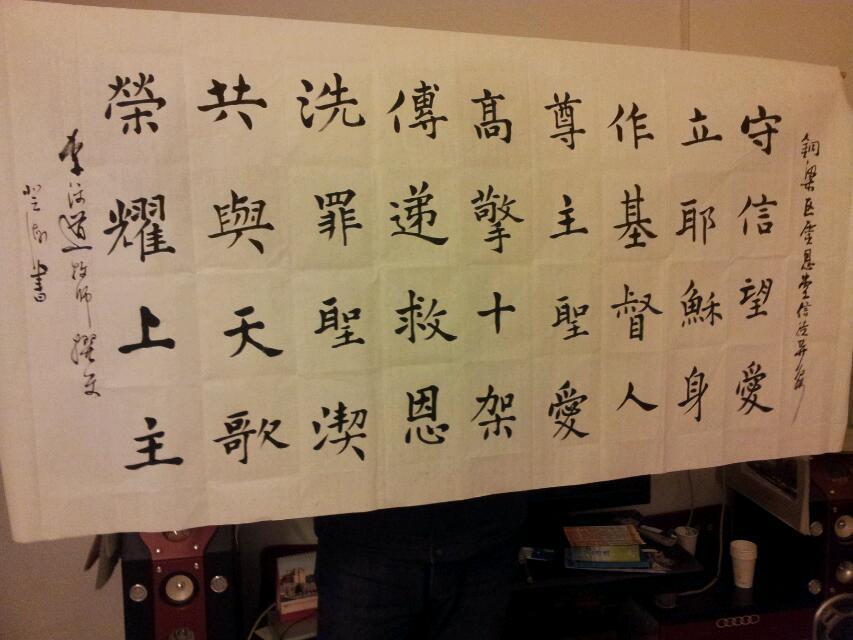 銅梁区恩堂信徒
守信望愛
立耶穌身
作基督人
尊主聖愛
高擎十架
傳递救恩
洗罪聖潔
共與天歌
榮耀上主
李道牧師撰文
書